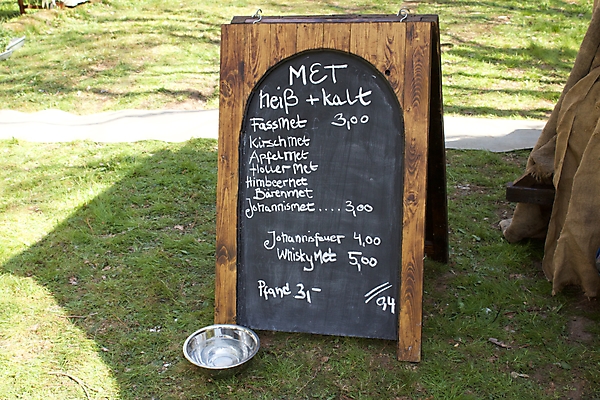 MET
heiß + kalt
Fassmet 3,00
Kirschmet
Apfelmet
Holler Met
Himbeermet
Bärenmet
Johannismet.... 3,00
Johannisfeuer 4,00
Whisky Met 5,00
Pfand 3,-
94